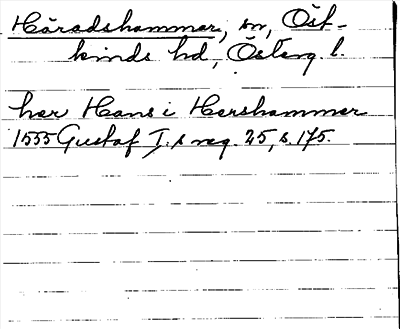 Häradshammar, sn, Öst-
kinds hd, Österg. l.
her Hans i Hershammer
1555 Gustaf I:s reg. 25, s. 175.